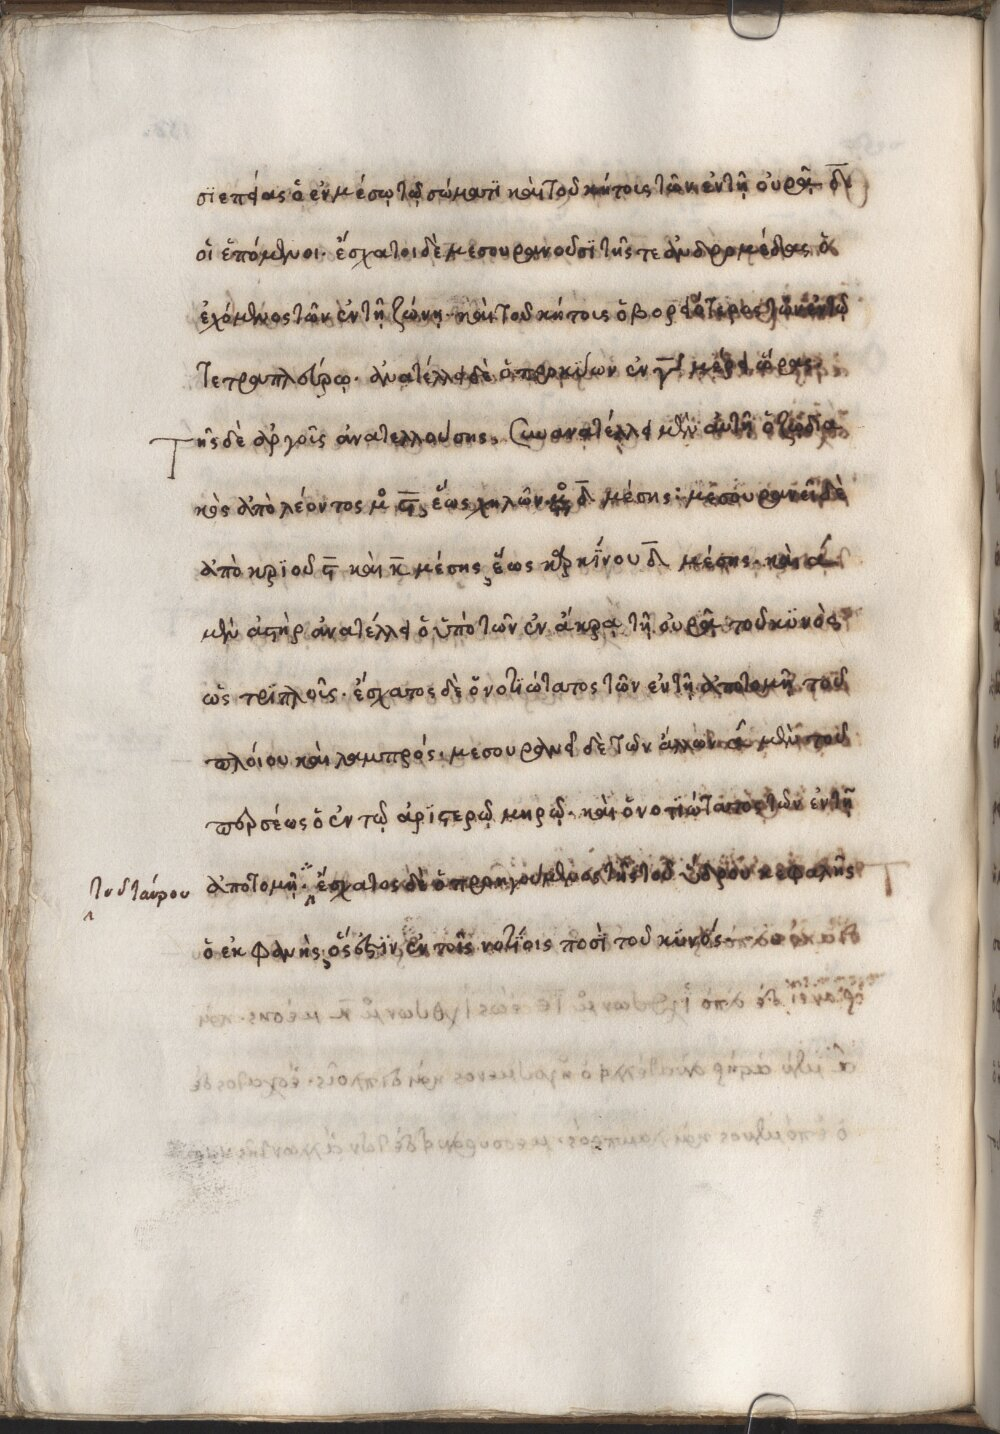 σϊ επέας ὁ ἐν μέσῳ τῷ σώματι καὶ τοῦ κήτους τῶν ἐν τῇ οὐρᾷ δύο
οἱ ἑπόμενοι. ἔσχατοι δὲ μεσουρανοῦσϊ τῆς τε ἀνδρομέδας ὁ
ἐχόμενος τῶν ἐν τῇ ζώνῃ. καὶ τοῦ κήτους ὁ βορειότερος τῶν ἐν τῷ
τετραπλεύρῳ. ἀνατέλλει δὲ ὁ προκύων ἐν μέρει ὥρας.
Τῆς δὲ ἀργοῦς ἀνατελλούσης. συνανατέλλει μὲν αὐτῇ ὁ ζῳδια
κὸς ἀπὸ λέοντος μο ϛ ἕως χηλῶν μο δ μέσης. μεσουρανεῖ δὲ
ἀπὸ κριοῦ ϛ καὶ κ μέσης ἕως καρκίνου δ μέσης. καὶ α
μὲν ἀστὴρ ἀνατέλλει ὁ ὑπὸ τῶν ἐν ἄκρᾳ τῇ οὐρᾷ τοῦ κυνὸς
ὡς τριπλοῦς. ἔσχατος δὲ ὁ νοτιώτατος τῶν ἐν τῇ ἀποτομῇ τοῦ
πλοίου καὶ λαμπρός. μεσουρανεῖ δὲ τῶν ἄλλων α μὲν τοῦ
περσέως ὁ ἐν τῷ ἀριστερῷ μηρῷ. καὶ ὁ νοτιώτατος τῶν ἐν τῇ
τοῦ ταύρου
ἀποτομῇ. ἔσχατος δὲ ὁ προηγούμενος τῆς τοῦ ὕδρου κεφαλῆς
ὁ ἐκφανής ὅς ἐστϊν ἐν τοῖς νοτίοις ποσὶ τοῦ κυνός.